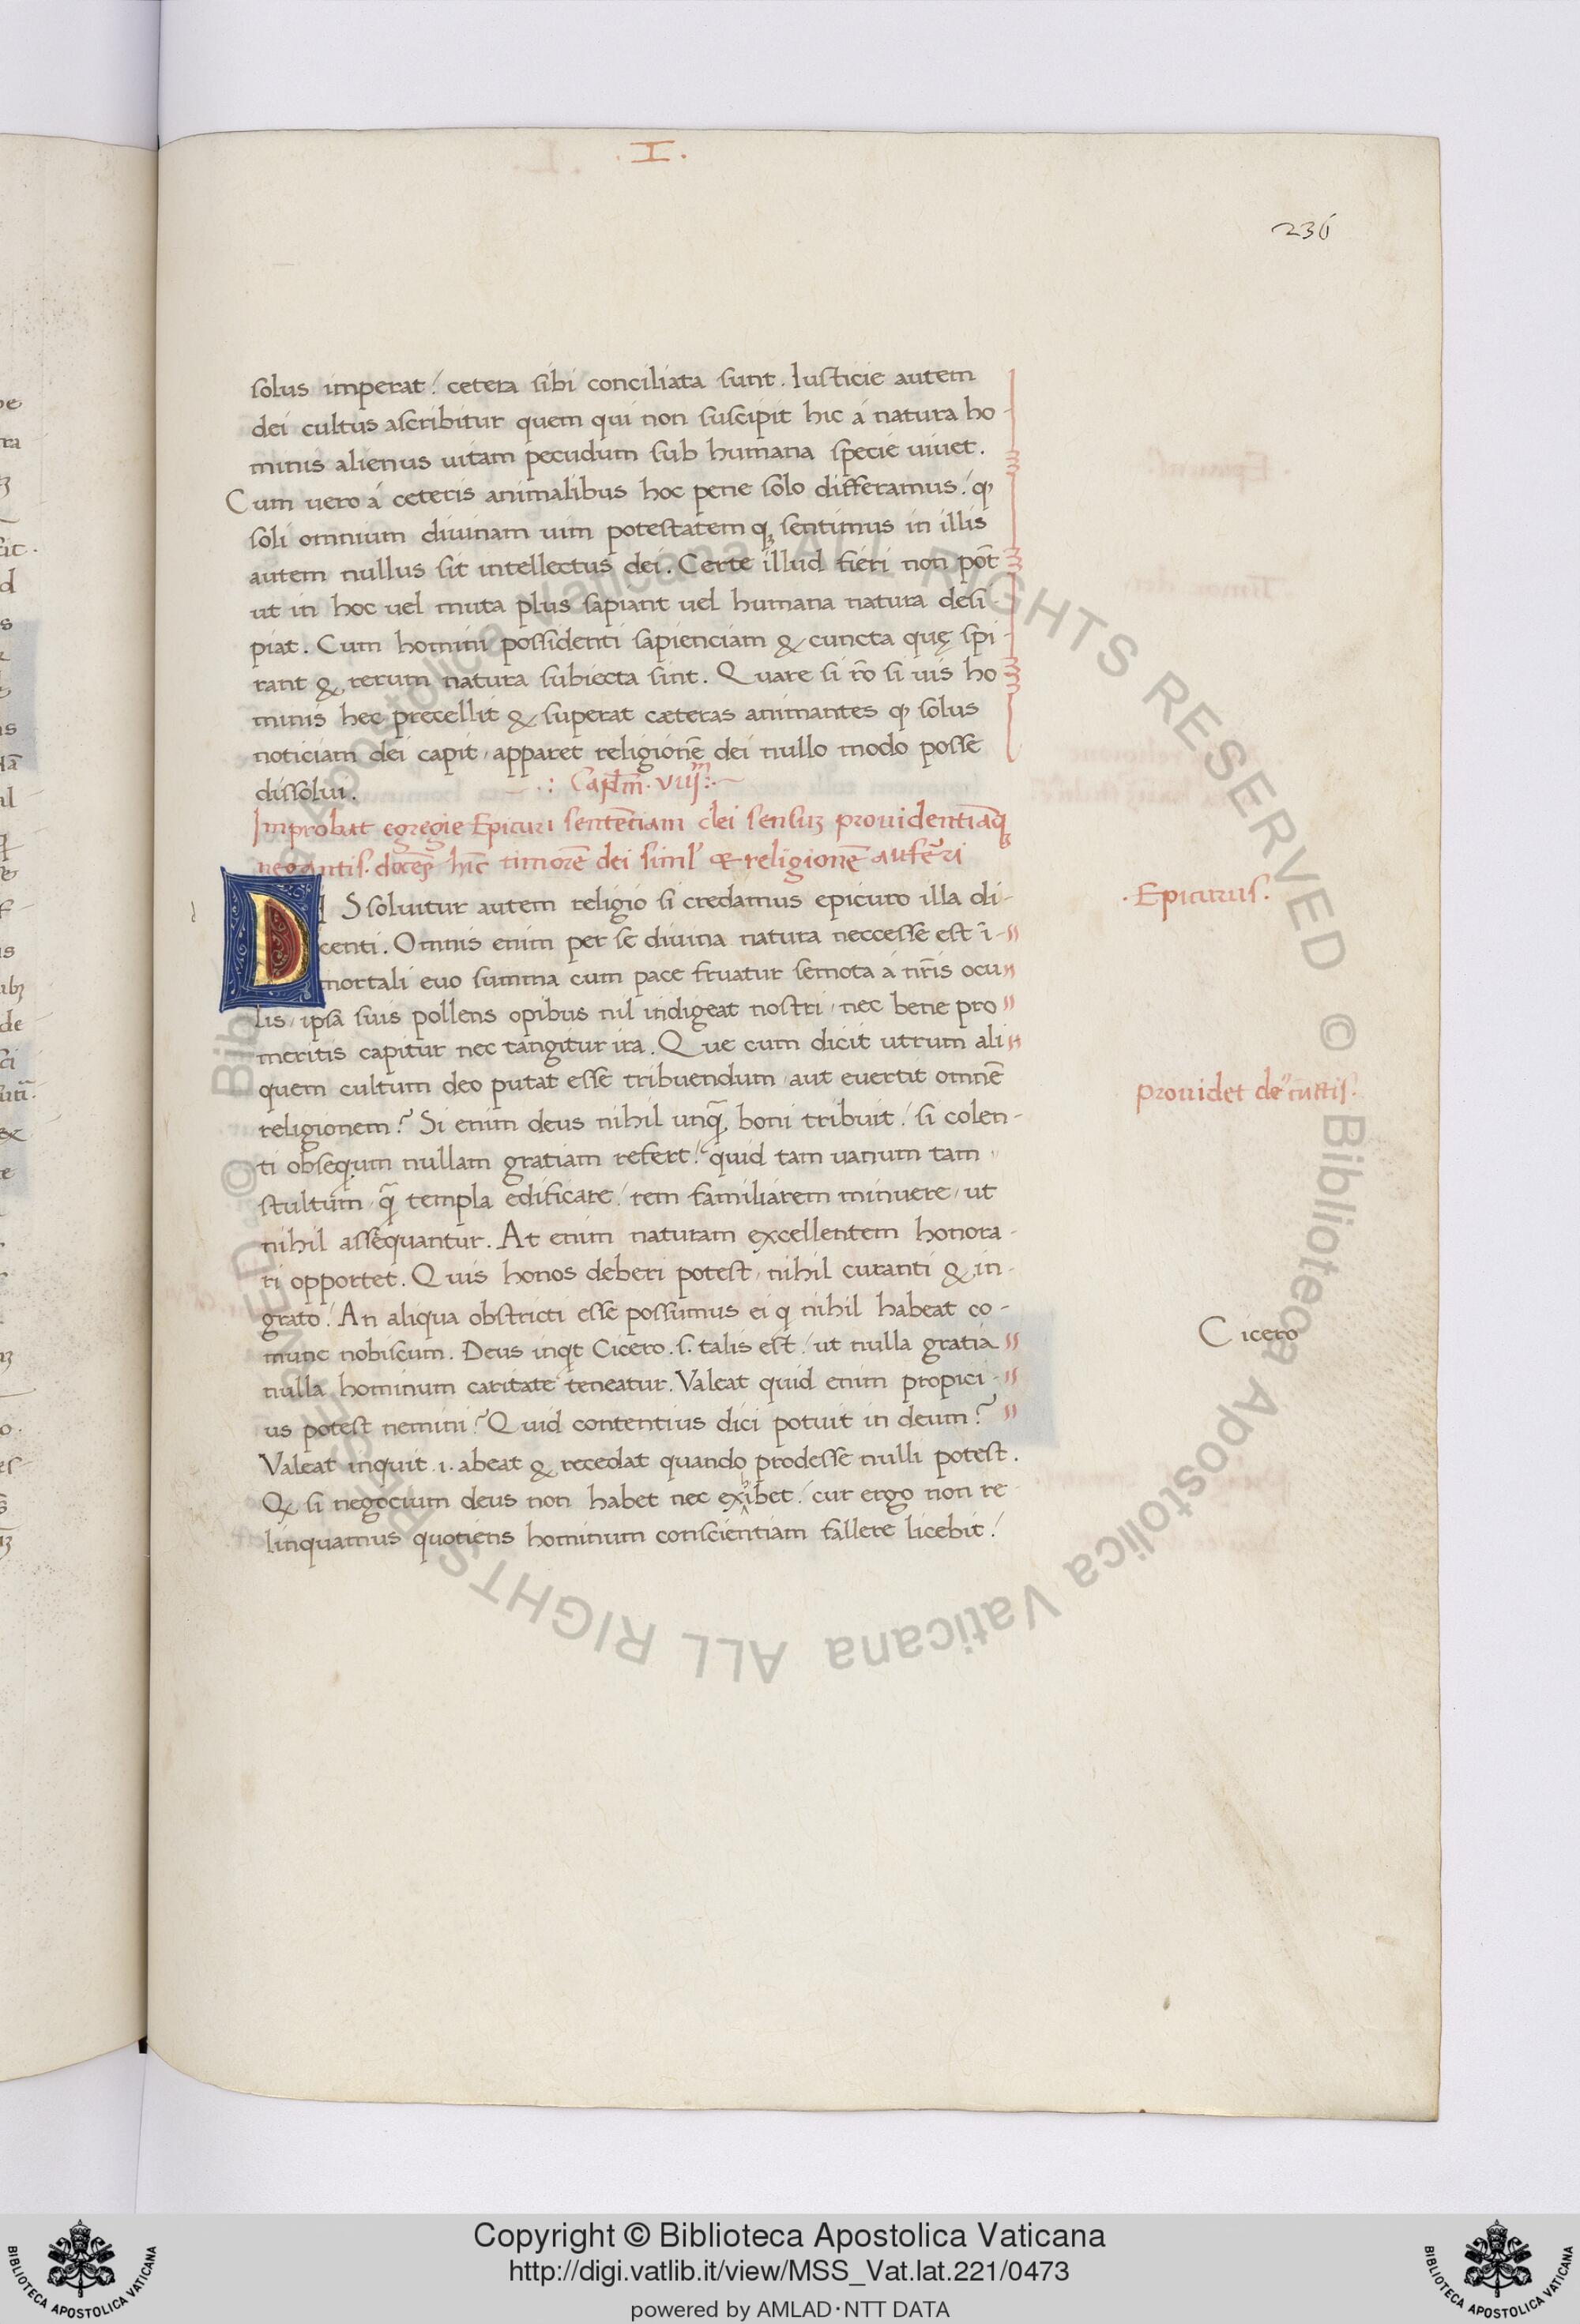 .I.
236
solus imperat / cetera sibi conciliata sunt. Iusticie autem
dei cultus ascribitur quem qui non suscipit hic á natura ho-
minis alienus uitam pecudum sub humana specie uiuet.
Cum uero á ceteris animalibus hoc pene solo differamus / ꝙ
soli omnium diuinam uim potestatem qꝫ sentimus in illis
autem nullus sit intellectus dei. Certe illud fieri non pot̄
ut in hoc uel muta plus sapiant uel humana natura desi
piat. Cum homini possidenti sapienciam & cuncta quę spi-
rant & rerum natura subiecta sint. Quare si rō si uis ho
minis hec precellit & superat cæteras animantes ꝙ solus
noticiam dei capit, apparet religionē dei nullo modo posse
dissolui.
Capl̄m. VIIJ.
Improbat egregie Epicuri sentētiam dei sensuꝫ prouidentiāqꝫ
negantis. docēs hīc timorē dei siml' & religionē auferri
DISsoluitur autem religio si credamus epicuro illa di-
centi. Omnis enim per se diuina natura neccesse est ī-
mortali euo summa cum pace fruatur semota á nr̄is ocu
lis, ipsa suis pollens opibus nil indigeat nostri, nec bene pro
meritis capitur nec tangitur ira. Que cum dicit utrum ali
quem cultum deo putat esse tribuendum, aut euertit omnē
religionem? Si enim deus nihil unq̄ boni tribuit / si colen-
ti obsequm nullam gratiam refert / quid tam uanum tam
stultum, q̄ templa edificare / rem familiarem minuere, ut
nihil assequantur. At enim naturam excellentem honora-
ri opportet. Quis honos deberi potest, nihil curanti & in-
grato / An aliqua obstricti esse possumus ei q nihil habeat co-
mune nobiscum. Deus inqt Cicero. s. talis est / ut nulla gratia
nulla hominum caritate teneatur. Valeat quid enim propici-
us potest nemini? Quid contentius dici potuit in deum?
Valeat inquit .i. abeat & recedat quando prodesse nulli potest.
Qꝫ si negocium deus non habet nec exhibet / cur ergo non re
linquamus quotiens hominum conscientiam fallere licebit /
.Epicurus.
prouidet de' cūctis.
Cicero
© Biblioteca Apostolica Vaticana ALL RIGHTS RESERVED © Biblioteca Apostolica Vaticana ALL RIGHTS RESERVED
Copyright © Biblioteca Apostolica Vaticana
http://digi.vatlib.it/view/MSS_Vat.lat.221/0473
powered by AMLAD·NTT DATA
BIBLIOTECA APOSTOLICA VATICANA
BIBLIOTECA APOSTOLICA VATICANA